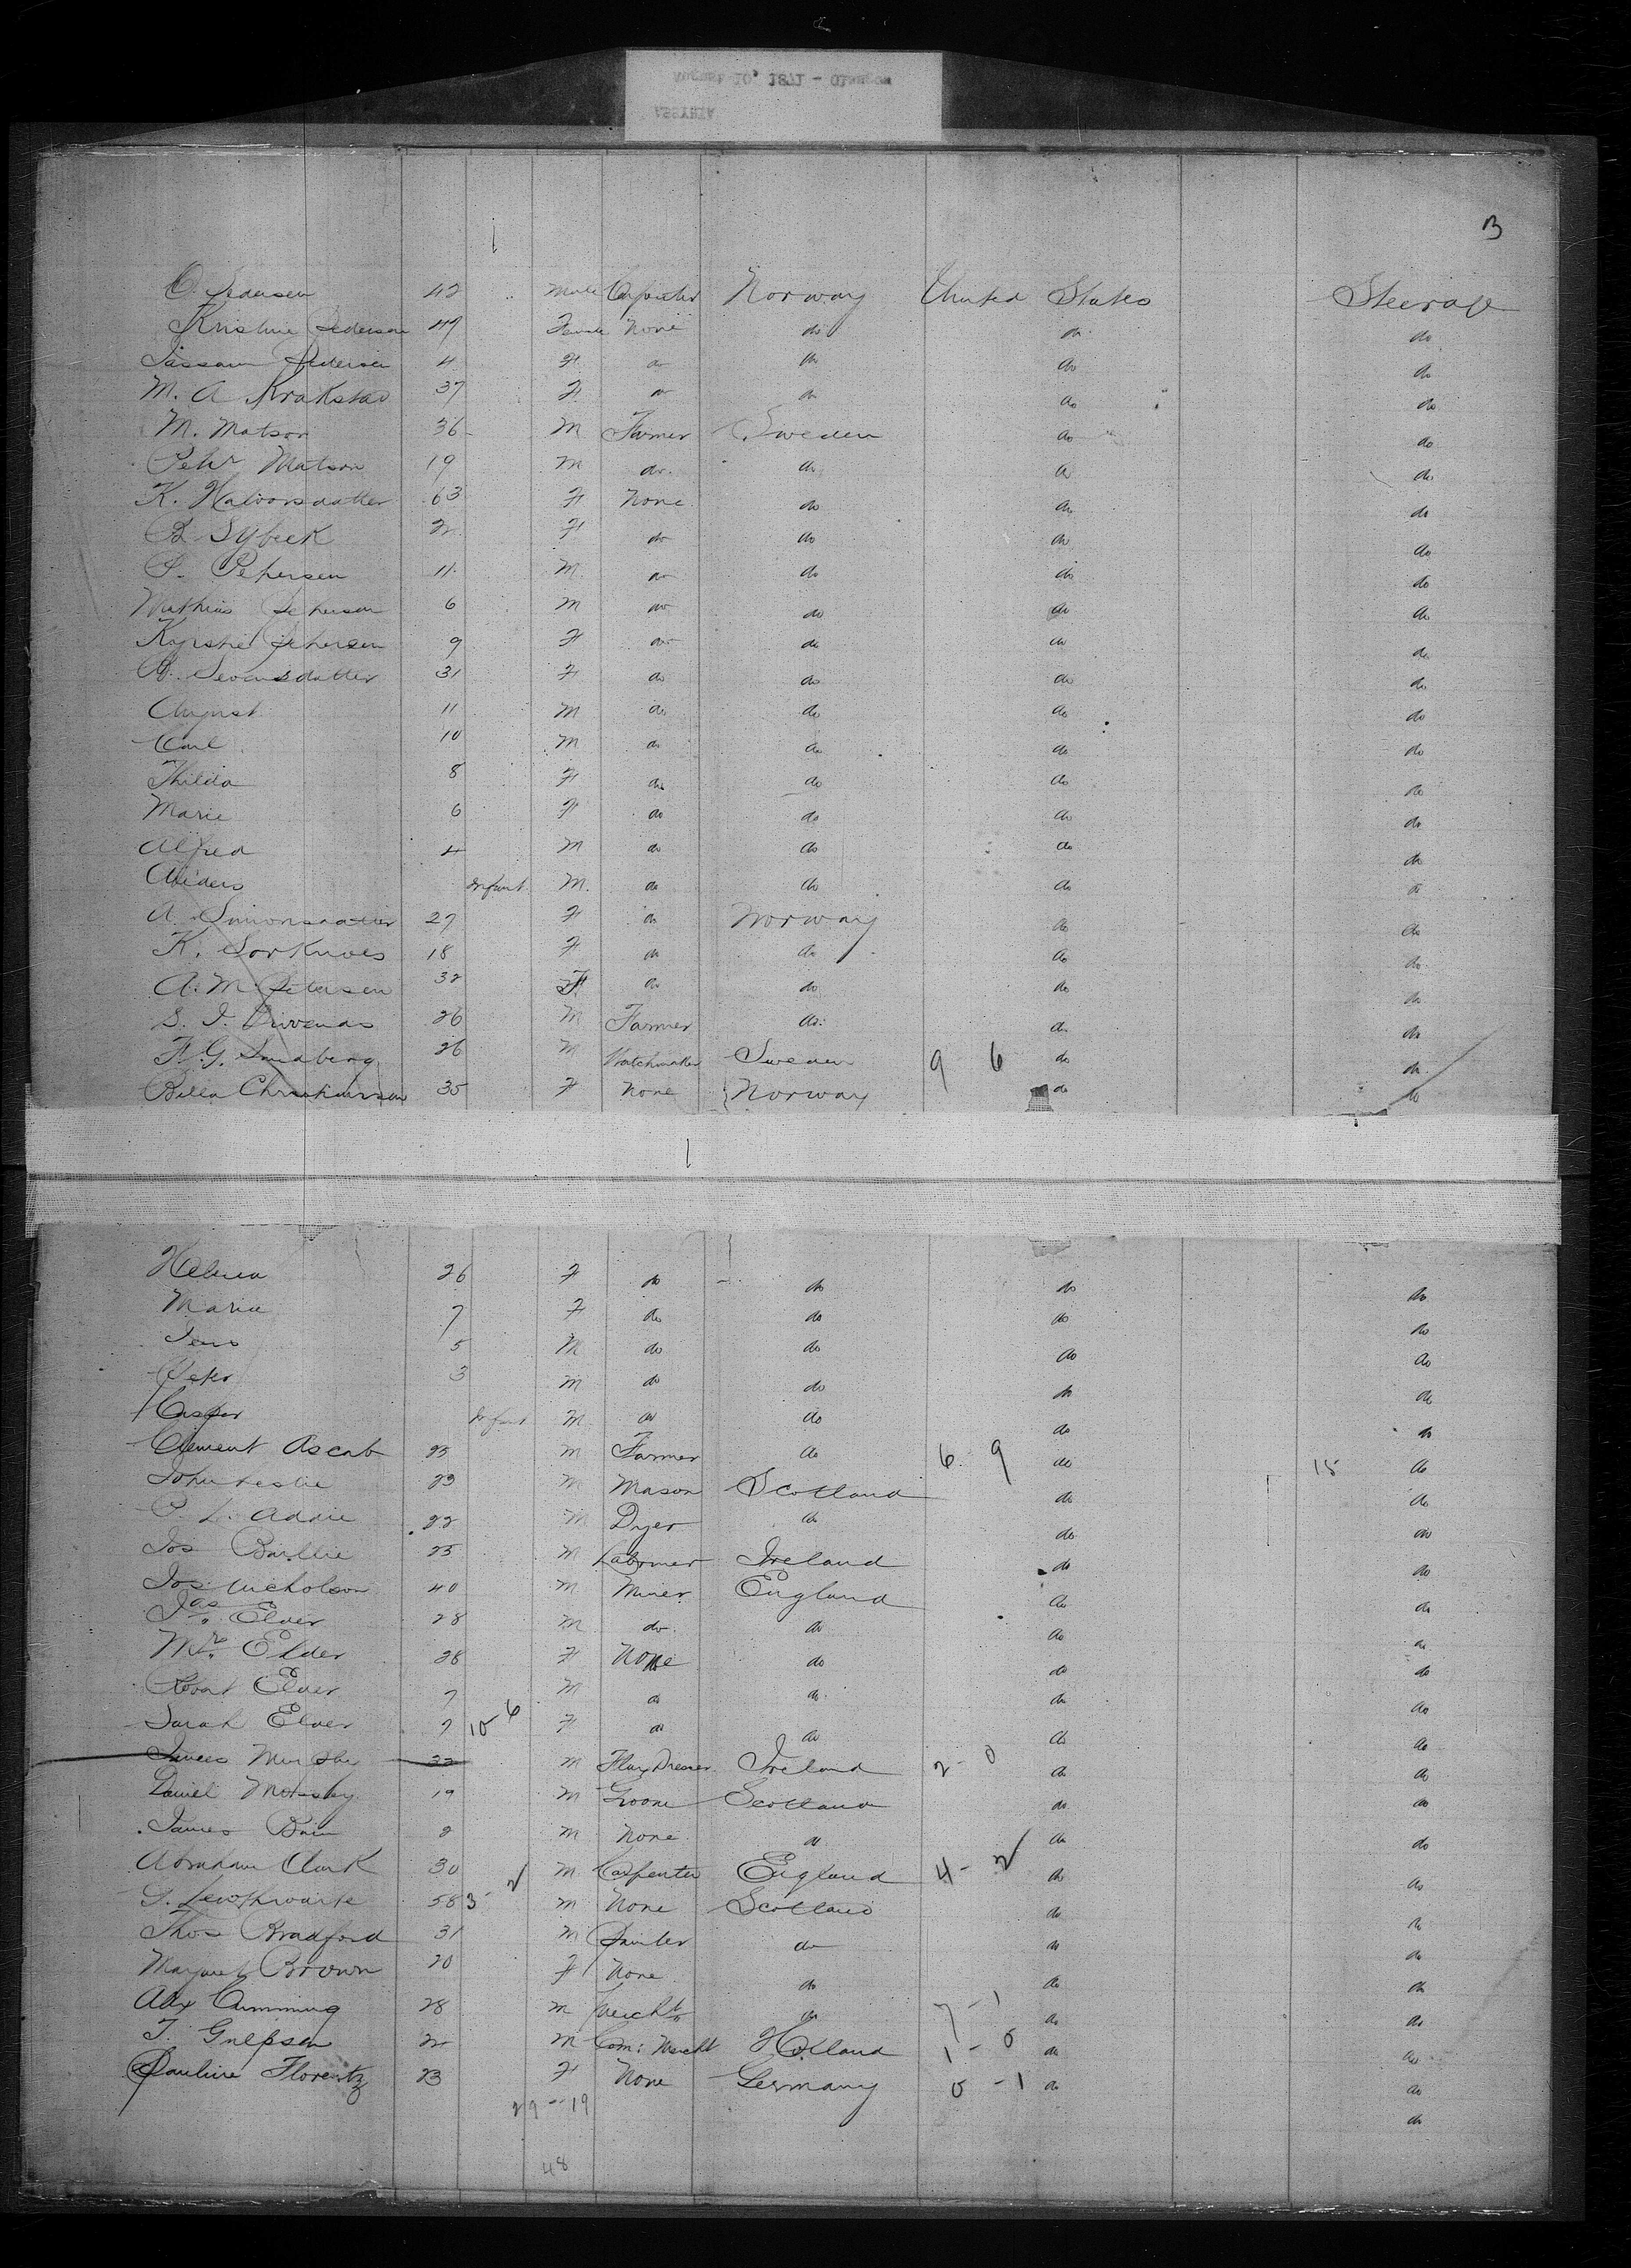 B
O. Pedersen 42 Male Carpenter Norway United States Steerage
Kristine Pedersen 49 Female None do do do
Pedersen 4 F do do do do
M. A Krakstad 37 F do do do do
M. Matson 36 M Farmer Sweden do do
Pehr Matson 19 M do do do do
K. Halvorsdatter 63 F None do do do
B Sybeck 22 F do do do do
P. Pehersen 11 M do do do do
Mathias Pehersen 6 M do do do do
Kjrstie Pehersen 9 F do do do do
31 F do do do do
August 11 M do do do do
Carl 10 M do do do do
Thilda 8 F do do do do
Marie 6 F do do do do
Alfred 4 M do do do do
Infant M. do do do do
A. Simonsdatter 27 F do Norway do do
K. Sorknoes 18 F do do do do
A. M. Petersen 32 F. do do do do
S. I. 26 M Farmer do do do
F. G. Sundberg 26 M Watchmaker Sweden 9 6 do do
Christiansen 35 F None Norway do do
Helena 26 F do do do do
Maria 7 F do do do do
Jens 5 M do do do do
Peter 3 M do do do do
Caspar Infant M do do do do
Clement Ascab 25 M Farmer do 6 9 do 15 do
John Leslie 23 M Mason Scotland do do
P. L. Addie 22 M Dyer do do do
Jos Baillie 25 M Labourer Ireland do do
Jos Nicholson 40 M Miner England do do
Jas Elder 28 M do do do do
Mrs Elder 28 F None do do do
Robert Elder 7 M do do do do
Sarah Elder 2 10 6 F do do do do
James Murphy 22 M Flax Dresser Ireland 2 - 0 do do
Daniel 19 M Groom Scotland do do
James Bain 2 M None do do do
Abraham Clark 30 2 M Carpenter England 4 - 2 do do
S. Lewthwaite 58 3 M None Scotland do do
Thos Bradford 31 M Painter do do do
Margaret Brown 20 F None do do do
Alex Cumming 28 M Mercht do 7 - 1 do do
T. 22 M Com: Mercht Holland 1 - 0 do do
Pauline Florentz 23 F None Germany 0 - 1 do do
29 - 19
48